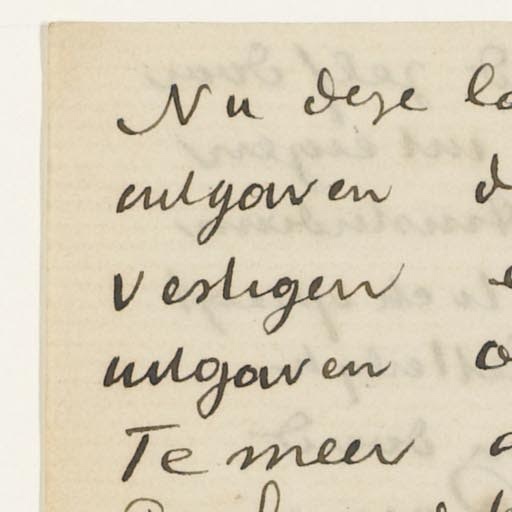 Nu deze
uitgaven
vestigen
uitgaven
Te meer